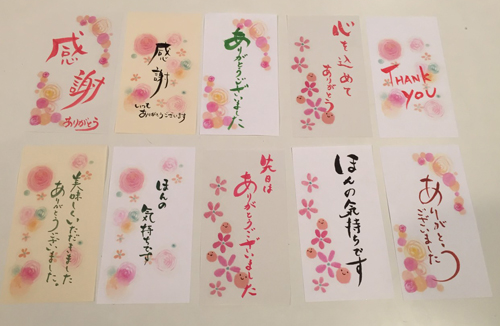 感謝
ありがとう
感謝
いつも
ありがとうございます
ありがとうございました
心を込めて
ありがとう
THANK
you.
美味しくいただきました
ありがとうございました。
ほんの
気持ちです
先日は
ありがとうございました
ほんの気持ちです
ありがとう
ございました